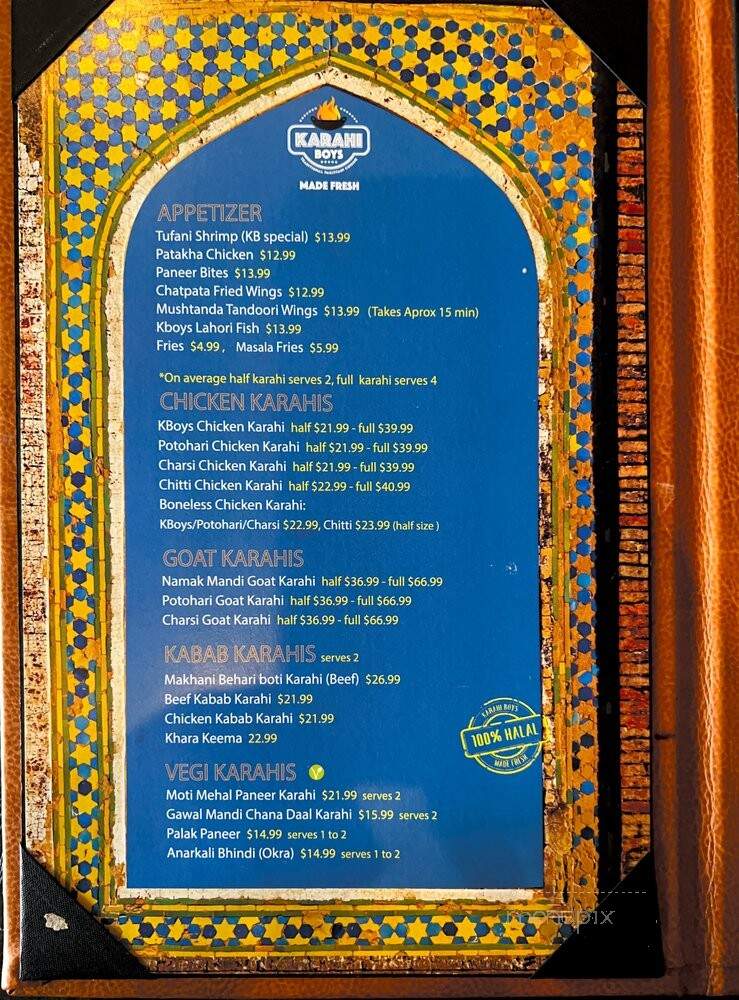 KARAHI
BOYS
MADE FRESH
APPETIZER
Tufani Shrimp (KB special) $13.99
Patakha Chicken $12.99
Paneer Bites $13.99
Chatpata Fried Wings $12.99
Mushtanda Tandoori Wings $13.99 (Takes Aprox 15 min)
Kboys Lahori Fish $13.99
Fries $4.99, Masala Fries $5.99
*On average half karahi serves 2, full karahi serves 4
CHICKEN KARAHIS
KBoys Chicken Karahi half $21.99 - full $39.99
Potohari Chicken Karahi half $21.99 - full $39.99
Charsi Chicken Karahi half $21.99 - full $39.99
Chitti Chicken Karahi half $22.99 - full $40.99
Boneless Chicken Karahi:
KBoys/Potohari/Charsi $22.99, Chitti $23.99 (half size )
GOAT KARAHIS
Namak Mandi Goat Karahi half $36.99 - full $66.99
Potohari Goat Karahi half $36.99 - full $66.99
Charsi Goat Karahi half $36.99 - full $66.99
KABAB KARAHIS serves 2
Makhani Behari boti Karahi (Beef) $26.99
Beef Kabab Karahi $21.99
Chicken Kabab Karahi $21.99
Khara Keema 22.99
KARAHI BOYS
100% HALAL
MADE FRESH
VEGI KARAHIS V
Moti Mehal Paneer Karahi $21.99 serves 2
Gawal Mandi Chana Daal Karahi $15.99 serves 2
Palak Paneer $14.99 serves 1 to 2
Anarkali Bhindi (Okra) $14.99 serves 1 to 2
menupix